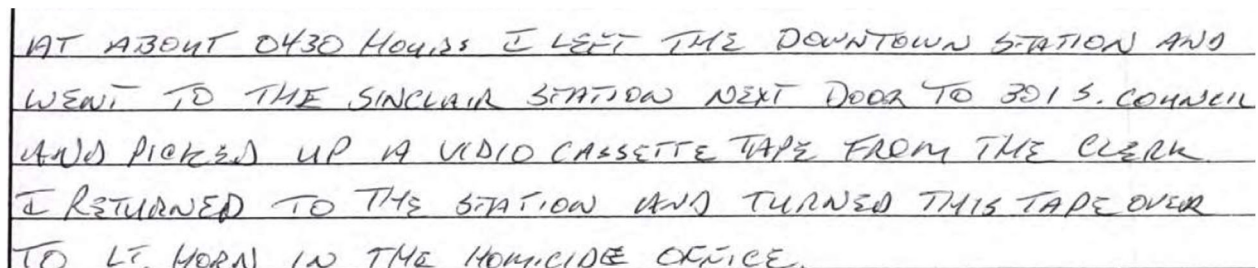 AT ABOUT 0430 HOURS I LEFT THE DOWNTOWN STATION AND
WENT TO THE SINCLAIR STATION NEXT DOOR TO 301 S. COUNCIL
AND PICKED UP A VIDIO CASSETTE TAPE FROM THE CLERK.
I RETURNED TO THE STATION AND TURNED THIS TAPE OVER
TO LT. HORN IN THE HOMICIDE OFFICE.